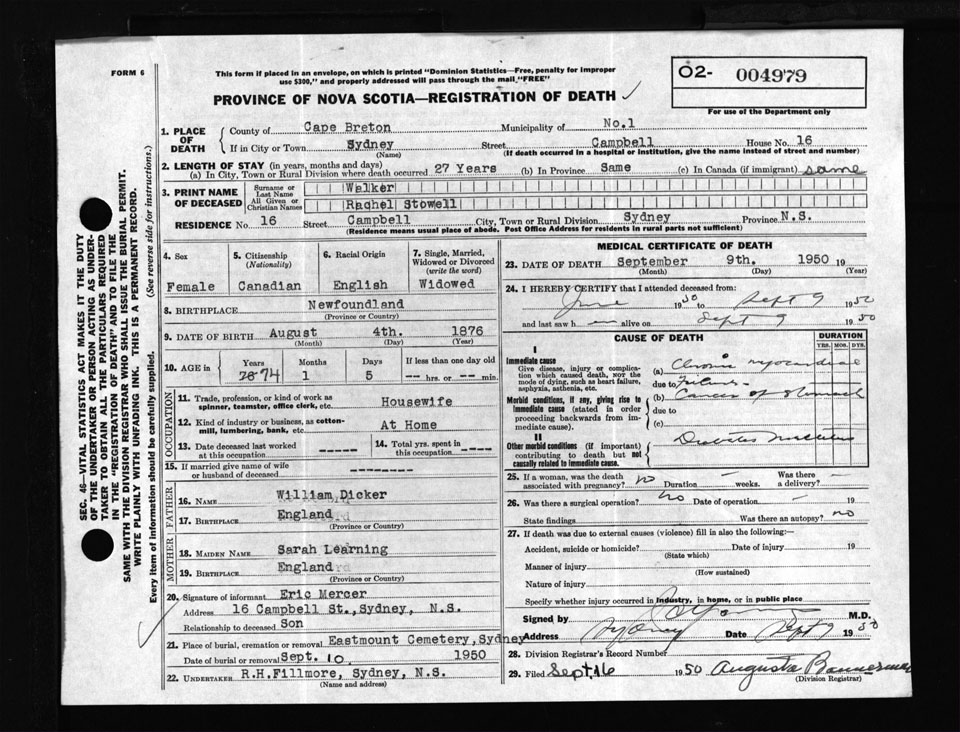 FORM 6
This form if placed in an envelope, on which is printed "Dominion Statistics—Free, penalty for improper
use $300," and properly addressed will pass through the mail "FREE"
O2- 004979
For use of the Department only
PROVINCE OF NOVA SCOTIA—REGISTRATION OF DEATH
1. PLACE OF DEATH
County of Cape Breton Municipality of No.1
If in City or Town Sydney Street Campbell House No. 16
(Name) (If death occurred in a hospital or institution, give the name instead of street and number)
2. LENGTH OF STAY (in years, months and days)
(a) In City, Town or Rural Division where death occurred 27 Years (b) In Province Same (c) In Canada (if immigrant) same
3. PRINT NAME OF DECEASED
Surname or Last Name Walker
All Given or Christian Names Rachel Stowell
RESIDENCE No. 16 Street Campbell City, Town or Rural Division Sydney Province N.S.
(Residence means usual place of abode. Post Office Address for residents in rural parts not sufficient)
4. Sex Female
5. Citizenship (Nationality) Canadian
6. Racial Origin English
7. Single, Married, Widowed or Divorced (write the word) Widowed
8. BIRTHPLACE Newfoundland
(Province or Country)
9. DATE OF BIRTH August 4th. 1876
(Month) (Day) (Year)
10. AGE in Years 74 Months 1 Days 5 If less than one day old -- hrs. or -- min.
OCCUPATION
11. Trade, profession, or kind of work as spinner, teamster, office clerk, etc. Housewife
12. Kind of industry or business, as cotton-mill, lumbering, bank, etc. At Home
13. Date deceased last worked at this occupation -----
14. Total yrs. spent in this occupation ----
15. If married give name of wife or husband of deceased --------
FATHER
16. NAME William Dicker
17. BIRTHPLACE England
(Province or Country)
MOTHER
18. MAIDEN NAME Sarah Learning
19. BIRTHPLACE England
(Province or Country)
20. Signature of informant Eric Mercer
Address 16 Campbell St., Sydney, N.S.
Relationship to deceased Son
21. Place of burial, cremation or removal Eastmount Cemetery, Sydney
Date of burial or removal Sept. 10 1950
22. UNDERTAKER R.H. Fillmore, Sydney, N.S.
(Name and address)
MEDICAL CERTIFICATE OF DEATH
23. DATE OF DEATH September 9th. 1950 19
(Month) (Day) (Year)
24. I HEREBY CERTIFY that I attended deceased from:
June 1950 to Sept 9 1950
and last saw h er alive on Sept 9 1950
CAUSE OF DEATH DURATION
YRS. MOS. DYS.
I
Immediate cause
Give disease, injury or complication which caused death, not the mode of dying, such as heart failure, asphyxia, asthenia, etc.
(a) Chronic myocardial
due to Failure
Morbid conditions, if any, giving rise to immediate cause (stated in order proceeding backwards from immediate cause).
(b) Cancer of Stomach
due to
(c)
II
Other morbid conditions (if important) contributing to death but not causally related to immediate cause.
Diabetes Mellitus
25. If a woman, was the death associated with pregnancy? no Duration — weeks. Was there a delivery? —
26. Was there a surgical operation? no Date of operation — 19
State findings Was there an autopsy? no
27. If death was due to external causes (violence) fill in also the following:—
Accident, suicide or homicide? Date of injury 19
(State which)
Manner of injury
(How sustained)
Nature of injury
Specify whether injury occurred in industry, in home, or in public place
Signed by M.D.
Address Sydney Date Sept 9 1950
28. Division Registrar's Record Number
29. Filed Sept. 16 1950 Augusta Bannerman
(Division Registrar)
SEC. 46—VITAL STATISTICS ACT MAKES IT THE DUTY
OF THE UNDERTAKER OR PERSON ACTING AS UNDER-
TAKER TO OBTAIN ALL THE PARTICULARS REQUIRED
IN THE "REGISTRATION OF DEATH" AND TO FILE THE
SAME WITH THE DIVISION REGISTRAR WHO SHALL ISSUE THE BURIAL PERMIT.
WRITE PLAINLY WITH UNFADING INK. THIS IS A PERMANENT RECORD.
Every item of information should be carefully supplied. (See reverse side for instructions.)